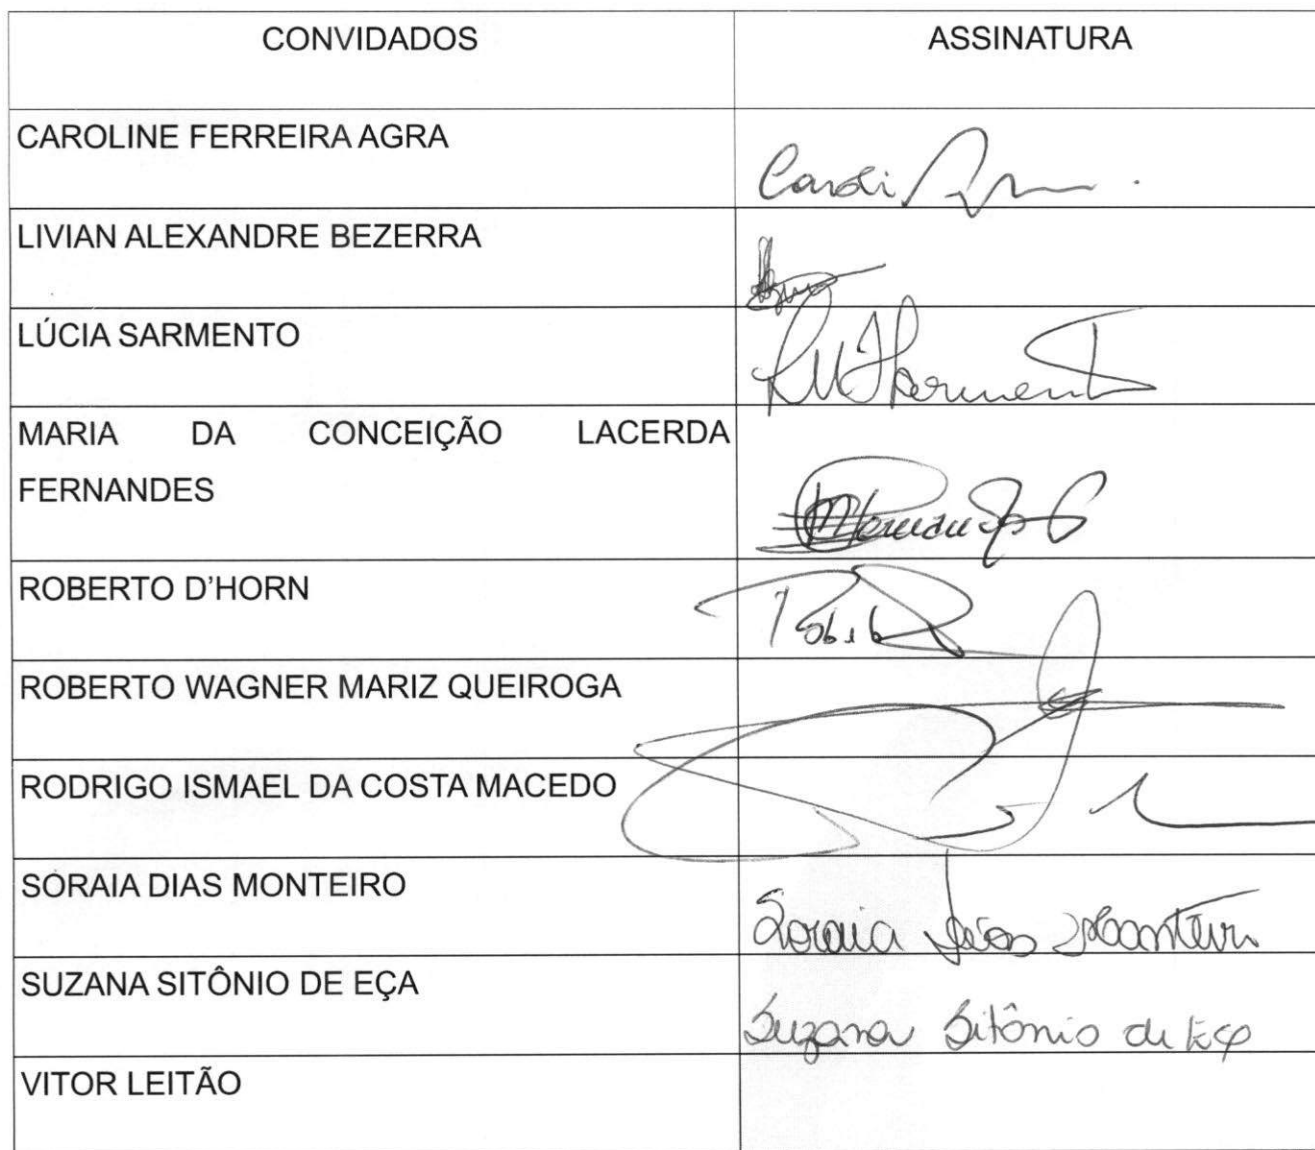 CONVIDADOS ASSINATURA
CAROLINE FERREIRA AGRA
LIVIAN ALEXANDRE BEZERRA
LÚCIA SARMENTO
MARIA DA CONCEIÇÃO LACERDA
FERNANDES
ROBERTO D’HORN
ROBERTO WAGNER MARIZ QUEIROGA
RODRIGO ISMAEL DA COSTA MACEDO
SORAIA DIAS MONTEIRO
Soraia Dias Monteiro
SUZANA SITÔNIO DE EÇA
Suzana Sitônio de Eça
VITOR LEITÃO